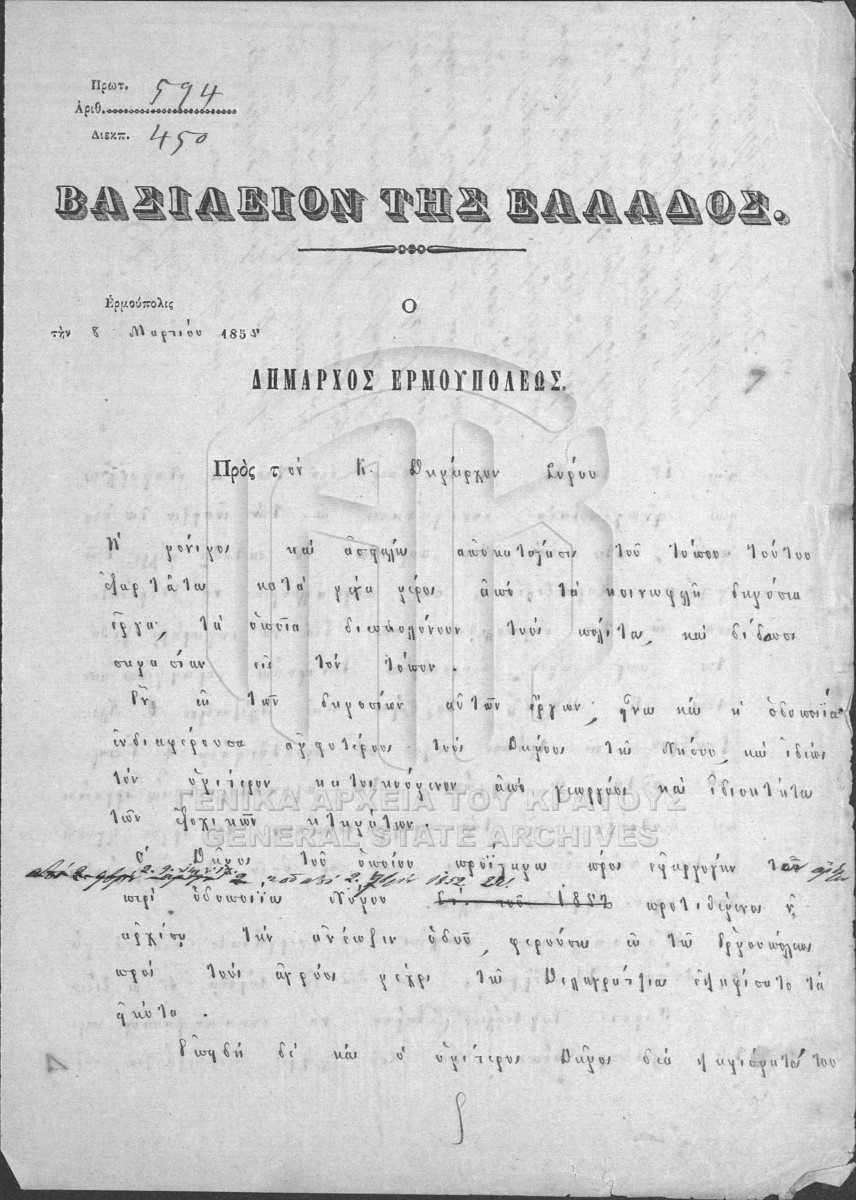 Πρωτ. 594
Ἀριθ.
Διεκπ. 450
ΒΑΣΙΛΕΙΟΝ ΤΗΣ ΕΛΛΑΔΟΣ.
Ἑρμούπολις
τὴν 8 Μαρτίου 185
Ο
ΔΗΜΑΡΧΟΣ ΕΡΜΟΥΠΟΛΕΩΣ.
Πρὸς τὸν Κ. Δήμαρχον Σύρου
Ἡ μόνιμος καὶ ἀσφαλὴς ἀποκατάστασις τοῦ τόπου τούτου
ἐξαρτᾶται κατὰ μέγα μέρος ἀπὸ τὰ κοινωφελῆ δημόσια
ἔργα, τὰ ὁποῖα διευκολύνουν τοὺς πολίτας καὶ δίδουσι
σημασίαν εἰς τὸν τόπον.
Ἓν ἐκ τῶν δημοσίων αὐτῶν ἔργων, εἶναι καὶ ἡ ὁδοποιΐα
ἐνδιαφέρουσα ἀμφοτέρους τοὺς Δήμους τῆς Νήσου, καὶ ἰδίως
τὸν ὑμέτερον κατοικούμενον ἀπὸ γεωργοὺς καὶ ἰδιοκτήτας
τῶν ἐξοχικῶν κτημάτων.
ΓΕΝΙΚΑ ΑΡΧΕΙΑ ΤΟΥ ΚΡΑΤΟΥΣ
GENERAL STATE ARCHIVES
Ὁ Δῆμος τοῦ ὁποίου προΐσταμαι πρὸς ἐφαρμογὴν τῶν
1852
περὶ ὁδοποιΐας Νόμου τοῦ 1852 προτιθέμενος ν'
ἀρχίσῃ τὴν ἄνοιξιν ὁδοῦ, φερούσης ἐκ τῆς Ἑρμουπόλεως
πρὸς τοὺς ἀγροὺς μέχρι τῆς Δελαγράτσιας ἐψηφίσατο τὰ
εἰκότα.
Ἐπειδὴ δὲ καὶ ὁ ὑμέτερος Δῆμος διὰ ψηφίσματός του